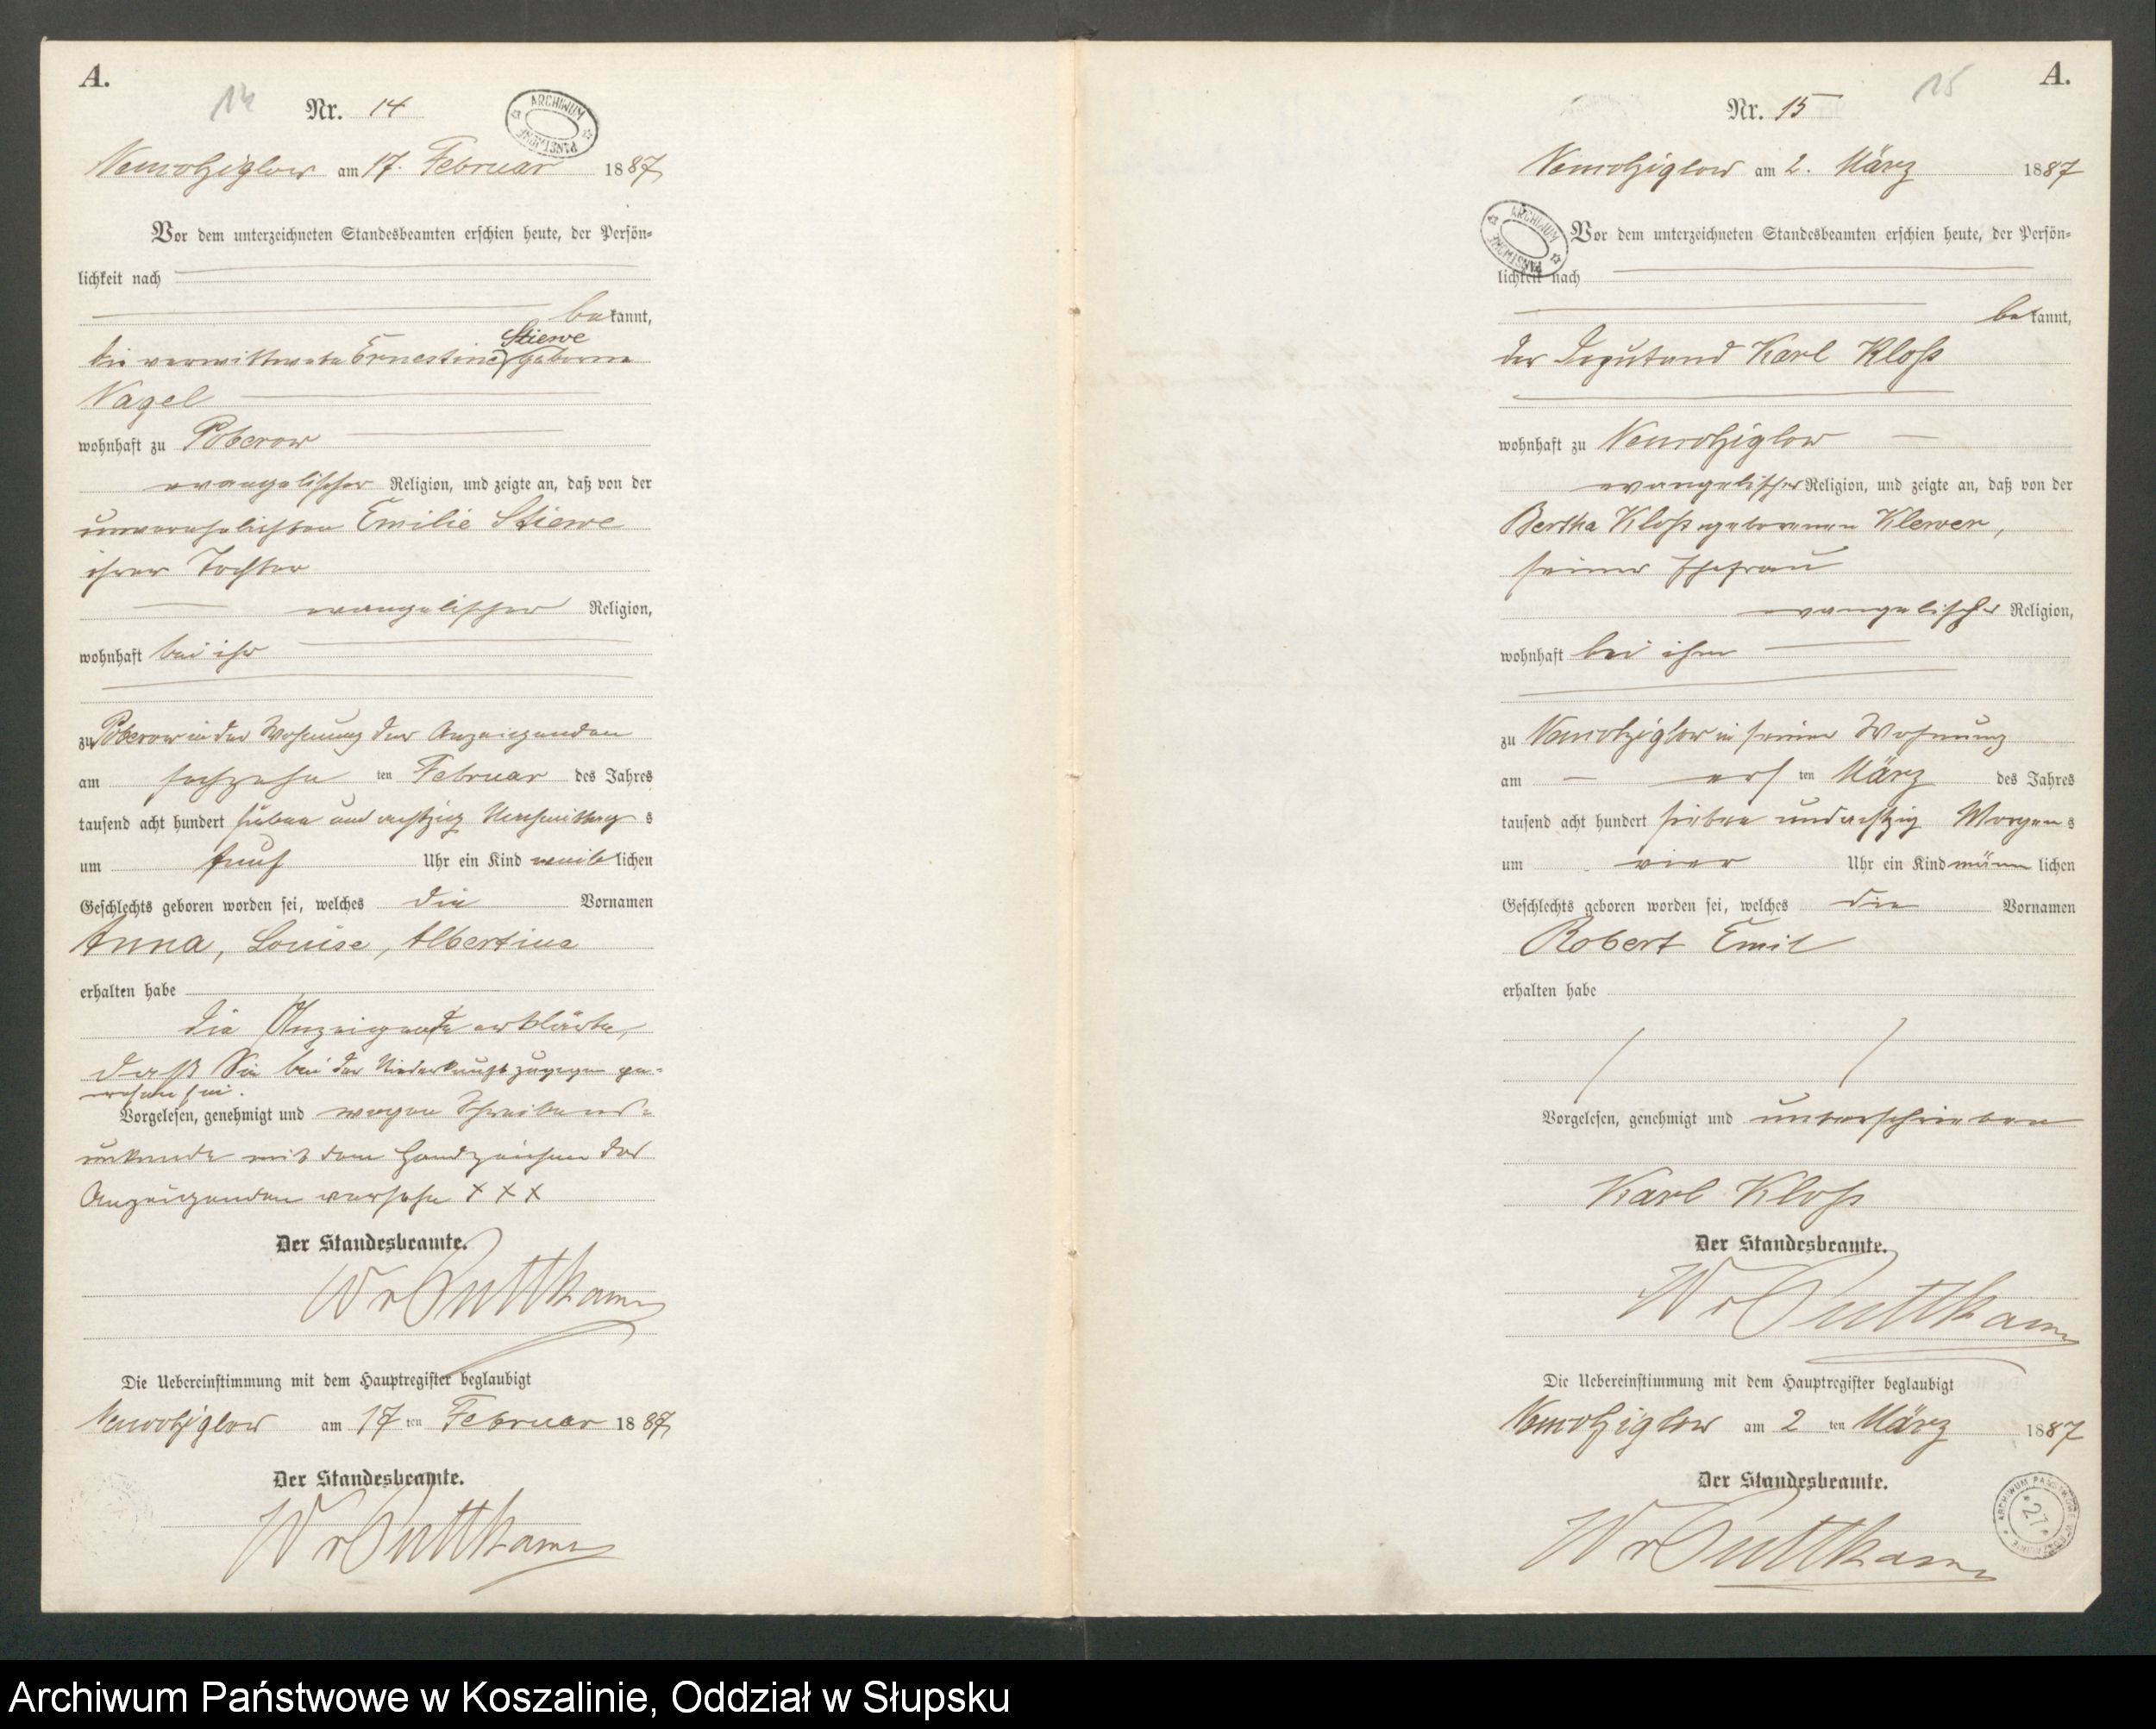 A.
14
Nr. 14
ARCHIWUM PAŃSTWOWE
Nemolziglow am 17. Februar 1887
Vor dem unterzeichneten Standesbeamten erschien heute, der Persön=
lichkeit nach
bekannt,
Stiewe
die verwittwete Ernestine geborne
Nagel
wohnhaft zu Poberow
evangelischer Religion, und zeigte an, daß von der
unverehelichten Emilie Stiewe
ihrer Tochter
evangelischer Religion,
wohnhaft bei ihr
zu Poberow in der Wohnung der Anzeigenden
am sechzehn ten Februar des Jahres
tausend acht hundert sieben und achtzig Nachmittag s
um fünf Uhr ein Kind weiblichen
Geschlechts geboren worden sei, welches die Vornamen
Anna, Louise, Albertine
erhalten habe
die Anzeigende erklärte,
daß Sie bei der Niederkunft zugegen ge=
wesen sei.
Vorgelesen, genehmigt und wegen Schreibens=
unkunde mit dem Handzeichen der
Anzeigenden versehn + + +
Der Standesbeamte.
W v Puttkamer
Die Uebereinstimmung mit dem Hauptregister beglaubigt
Nemolziglow am 17 ten Februar 1887
Der Standesbeamte.
W v Puttkamer
A.
15
Nr. 15
Nemolziglow am 2. März 1887
ARCHIWUM PAŃSTWOWE
Vor dem unterzeichneten Standesbeamten erschien heute, der Persön=
lichkeit nach
bekannt,
der Deputand Karl Kloß
wohnhaft zu Nemolziglow
evangelischer Religion, und zeigte an, daß von der
Bertha Kloß geborenen Klewer,
seiner Ehefrau
evangelischer Religion,
wohnhaft bei ihm
zu Nemolziglow in seiner Wohnung
am ers ten März des Jahres
tausend acht hundert sieben und achtzig Morgens
um vier Uhr ein Kind männlichen
Geschlechts geboren worden sei, welches die Vornamen
Robert Emil
erhalten habe
Vorgelesen, genehmigt und unterschrieben
Karl Kloß
Der Standesbeamte.
W v Puttkamer
Die Uebereinstimmung mit dem Hauptregister beglaubigt
Nemolziglow am 2 ten März 1887
Der Standesbeamte.
W v Puttkamer
ARCHIWUM PAŃSTWOWE W
*27*
Archiwum Państwowe w Koszalinie, Oddział w Słupsku